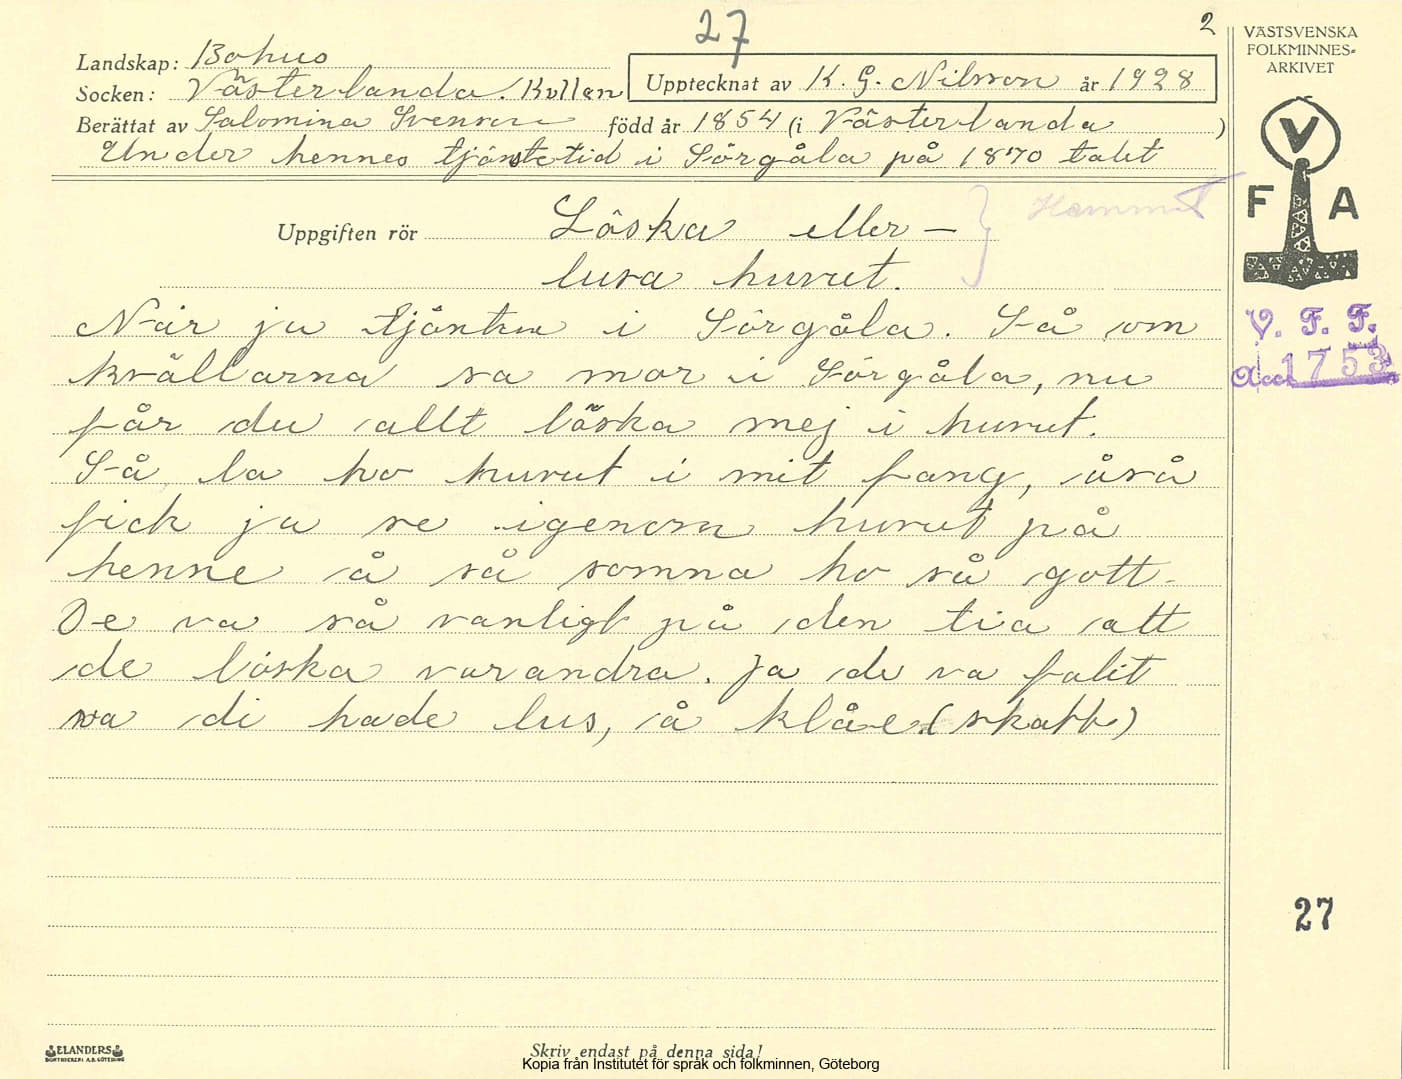 27
2
VÄSTSVENSKA
FOLKMINNES-
ARKIVET
Landskap: Bohus
Socken: Västerlanda. Kullen
Upptecknat av K. G. Nilsson år 1928
Berättat av Salomina Svensson född år 1854 (i Västerlanda )
Under hennes tjänstetid i Sörgåla på 1870 talet
Uppgiften rör Löska eller –
lusa huvut.
V
F A
V. F. F.
Acc. 1753
När ja tjänten i Sörgåla. Så om
kvällarna sa mor i Sörgåla, nu
får du allt löska mej i huvut.
Så la ho huvut i mit fang, åså
fick ja se igenom huvut på
henne å så somna ho så gott.
De va så vanligt på den tia att
de löska varandra. Ja de va falit
va di hade lus, å klåe (skabb)
27
ELANDERS
BOKTRYCKERI A.B. GÖTEBORG
Skriv endast på denna sida!
Kopia från Institutet för språk och folkminnen, Göteborg